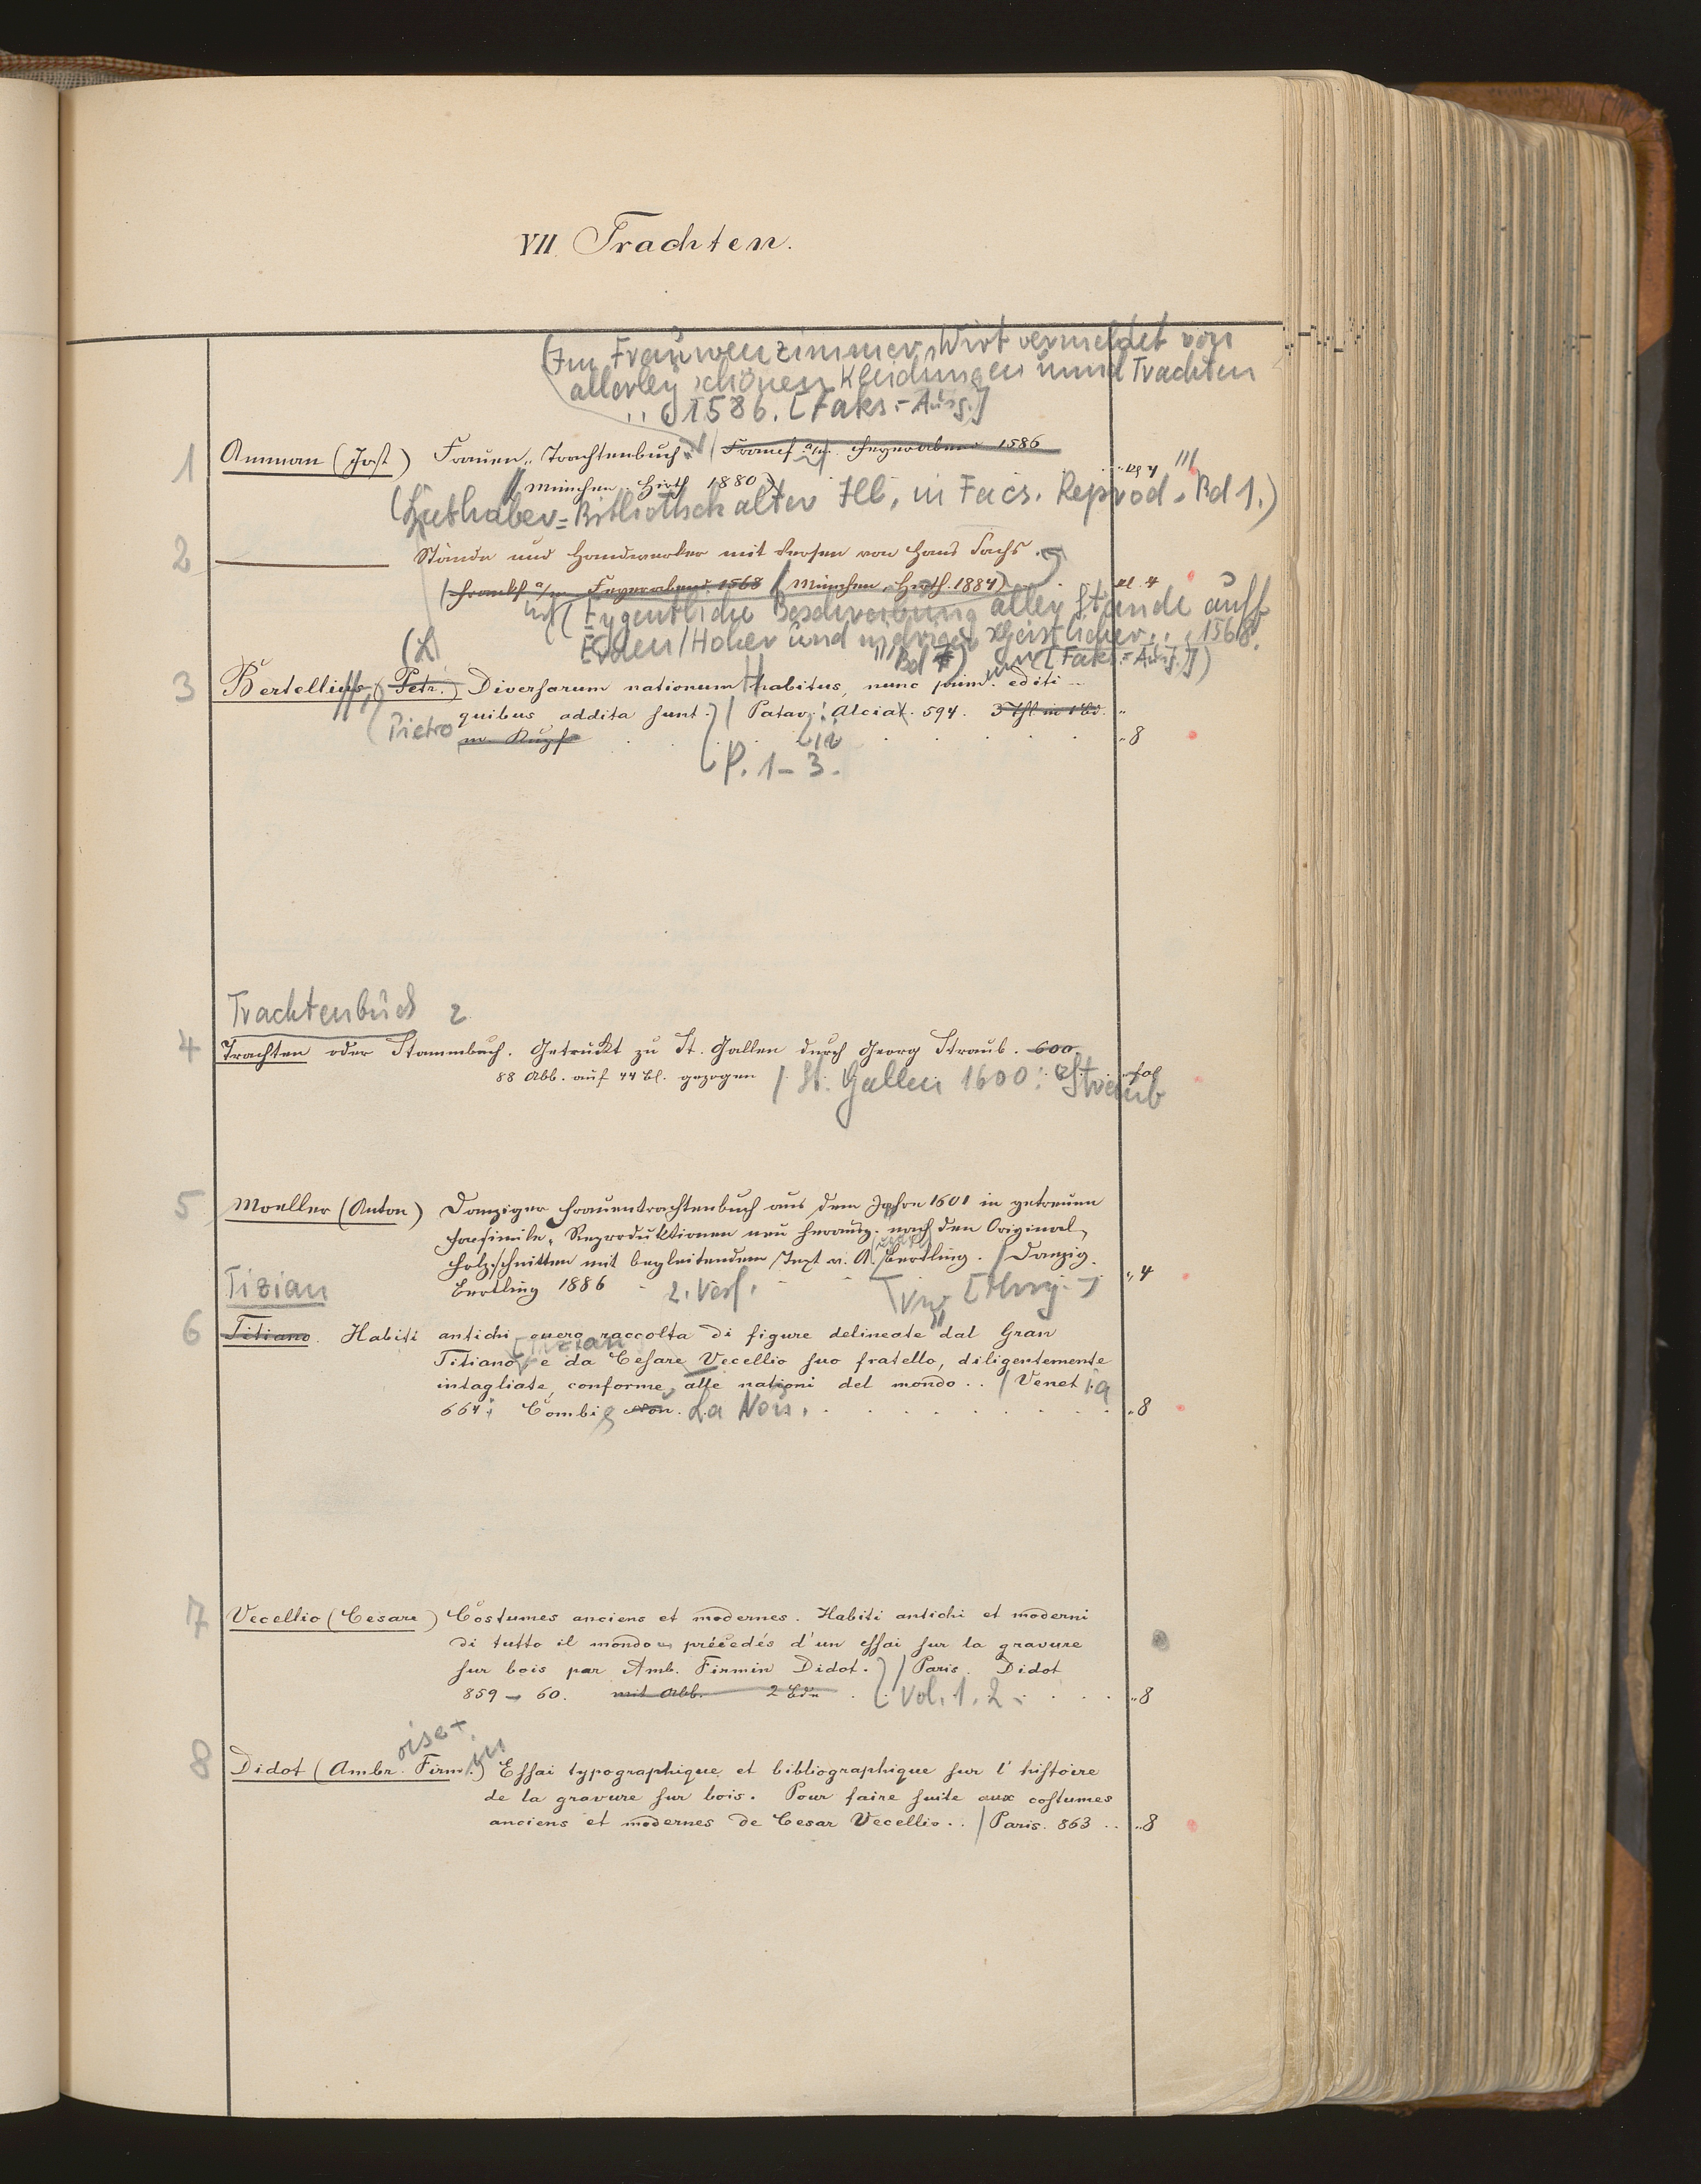 VII. Trachten.
(Im Frauwenzimmer Wirt vermeldet von
allerley schönen Kleidungen unnd Trachten
.. 1586. [Faks.-Ausg.]
1 Amman (Jost) Frauen-Trachtenbuch. (Francf a/m. Feyerabend 1586
München. Hirth 1880) kl 4
(Liebhaber-Bibliothek alter Ill. in Facs. Reprod. Bd 1.)
2 Stände und Handwerker mit Versen von Hans Sachs.
(Frankf a/m Feyerabend 1568 / München. Hirth. 1884) kl. 4
(Eygentliche Beschreibung aller Stände auff
Erden / Hoher und nidriger Geistlicher .. 1568.
(L Bd 7) [Faks.-Ausg.])
3 Bertellius (Petr.) Diversarum nationum habitus, nunc prim. editi
quibus addita sunt. / Patav: Alciat. 594. 3 Thl in 1 Bd.
(Pietro m. Kupf 8
P. 1-3.
Trachtenbuch 2
4 Trachten oder Stammbuch. Getruckt zu St. Gallen durch Georg Straub. 600.
88 Abb. auf 44 Bl. gezogen / St. Gallen 1600: Straub fol
5 Moeller (Anton) Danziger Frauentrachtenbuch aus dem Jahre 1601 in getreuen
Facsimile-Reproduktionen neu herausg. nach den Original
Holzschnitten mit begleitendem Text v. A. Bertling. / Danzig.
Bertling 1886 2. Verf. [Hrsg.] 4
Tizian
6 Titiano. Habiti antichi overo raccolta di figure delineate dal Gran
Titiano, e da Cesare Vecellio suo fratello, diligentemente
intagliate, conforme alle nationi del mondo .. / Venetia
664: Combi & Nou. La Nou. 8
7 Vecellio (Cesare) Costumes anciens et modernes. Habiti antichi et moderni
di tutto il mondo précedés d'un essai sur la gravure
sur bois par Amb. Firmin Didot. / Paris. Didot
859-60. mit Abb. 2 Bde Vol. 1. 2. 8
oise+
8 Didot (Ambr. Firmin) Essai typographique et bibliographique sur l'histoire
de la gravure sur bois. Pour faire suite aux costumes
anciens et modernes de Cesar Vecellio .. / Paris. 863 .. 8